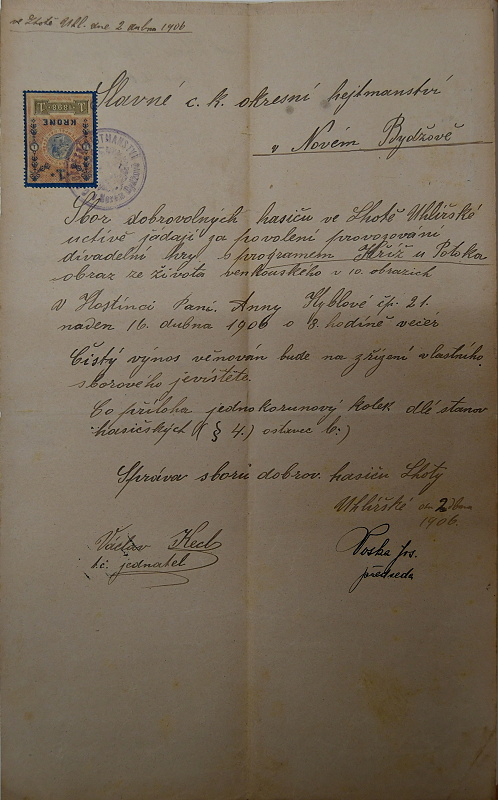 ve Lhotě Uhl. dne 2 dubna 1906
Slavné c. k. okresní hejtmanství
v Novém Bydžově
1 1898 1
KRONE
1
Sbor dobrovolných hasičů ve Lhotě Uhlířské
uctivě žádají za povolení provozování
divadelní hry, s programem Kříž u Potoka
obraz ze života venkouského v 10. obrazích
V Hostinci Paní. Anny Hyblové čp. 21.
naden 16. dubna 1906 o 8. hodině večer
Čistý výnos věnován bude na zřízení vlastního
sborového jevištěte.
Co příloha jednokorunový kolek dlé stanov
hasičských (§ 4.) ostavec b.)
Správa sboru dobrov. hasičů Lhoty
Uhlířské dn 2 dbna
1906.
Václav Kecl
t.č. jednatel
Voska Jos.
předseda